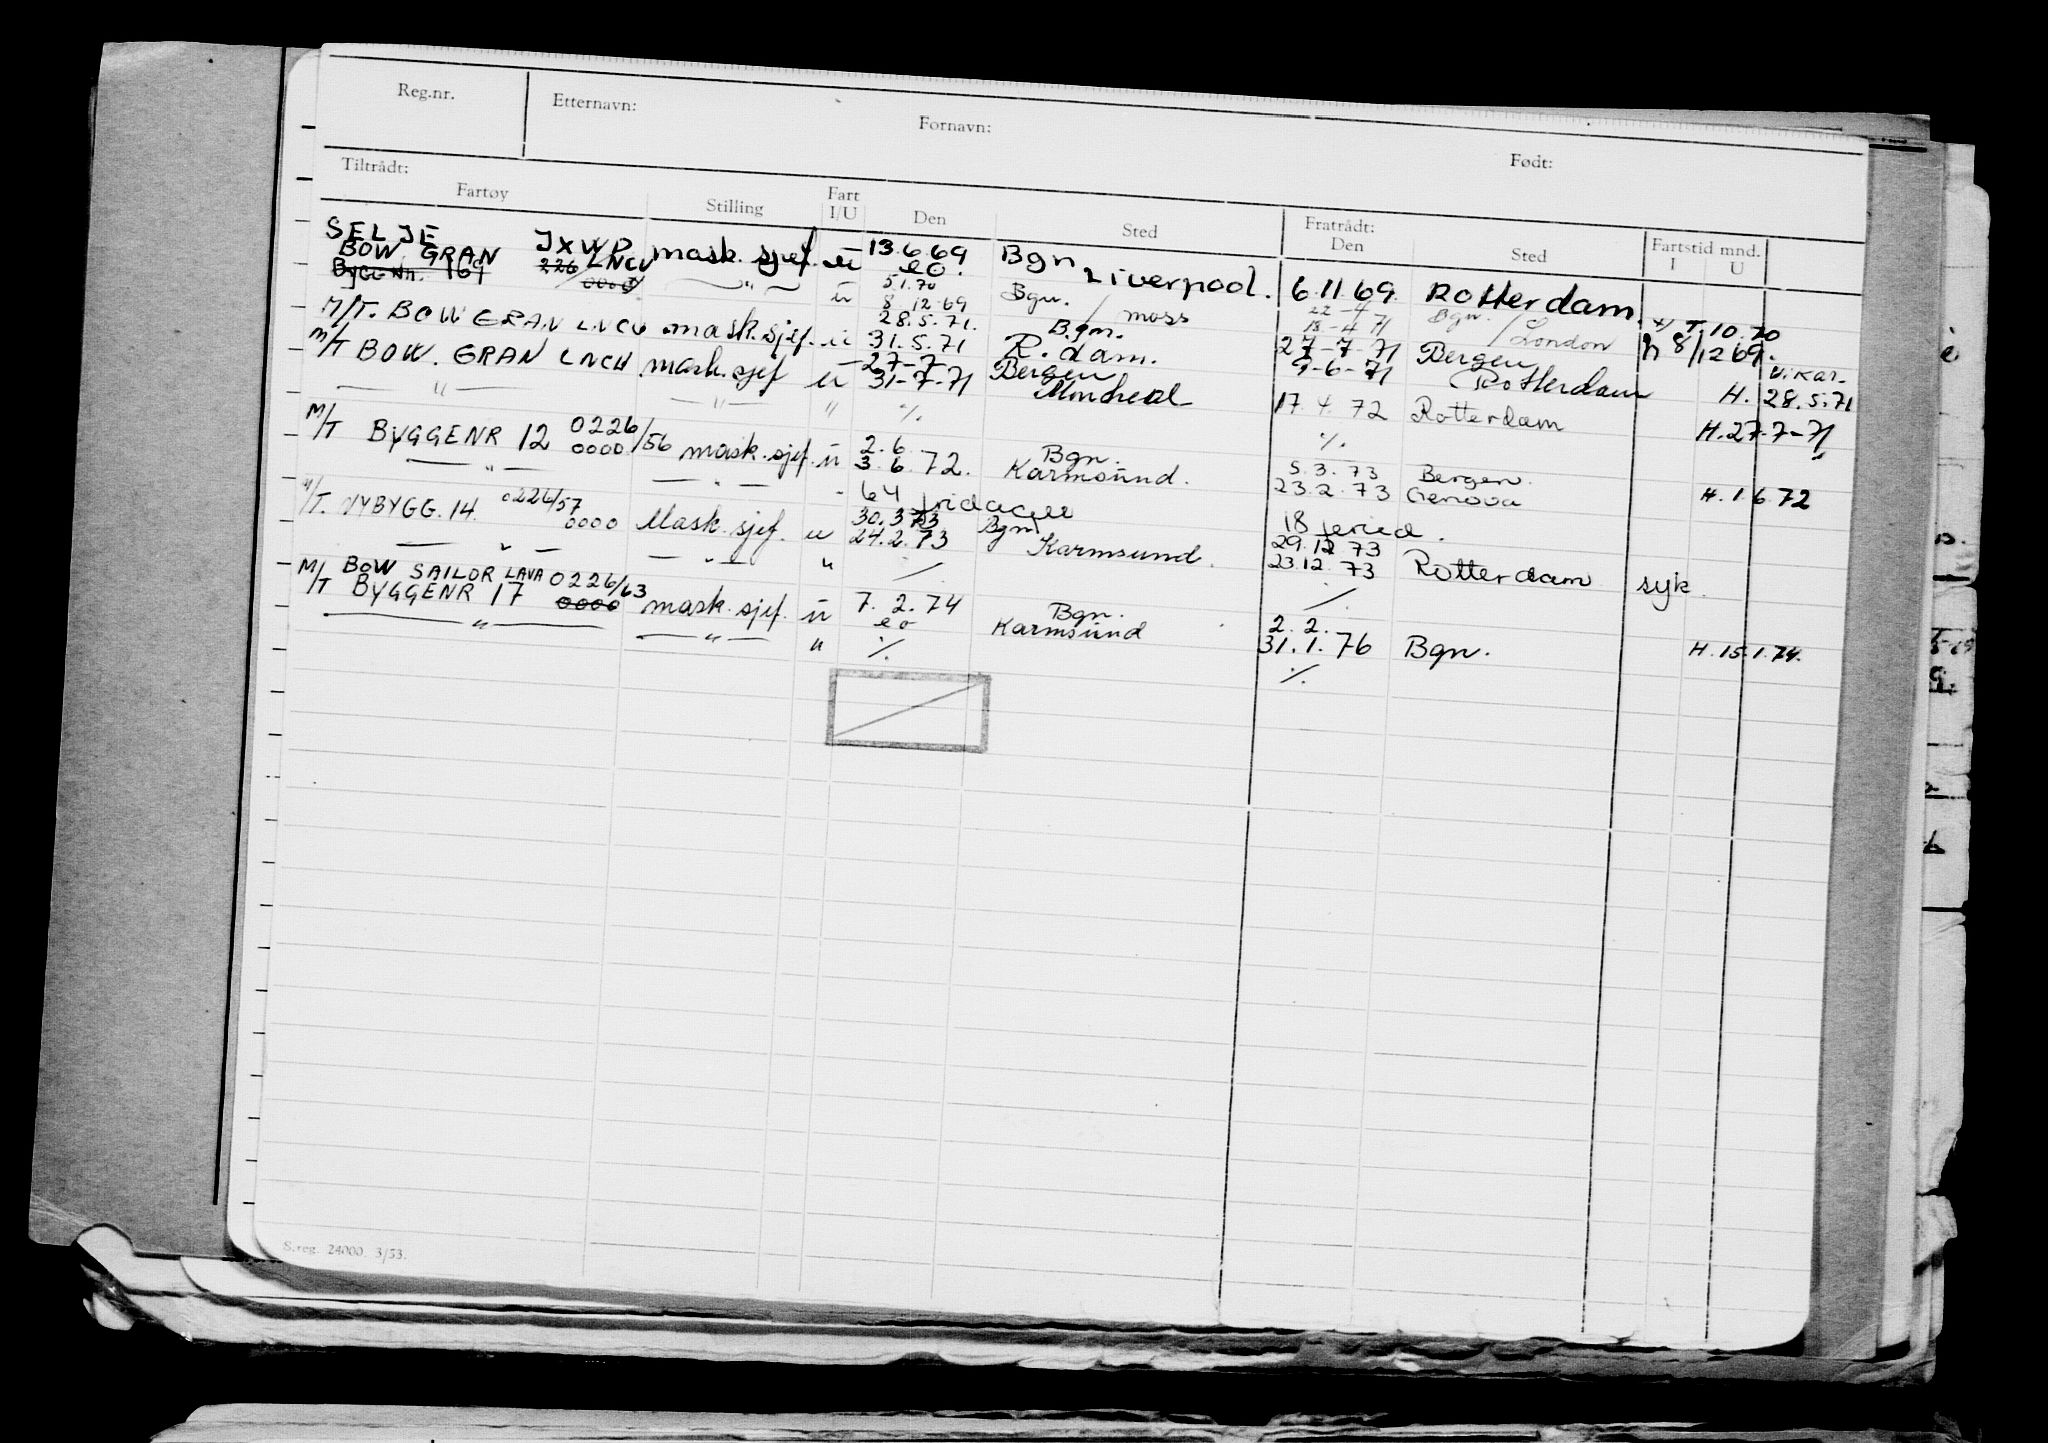 Reg.nr. Etternavn: Fornavn: Født:
Tiltrådt: Fratrådt:
Fartøy Stilling Fart I/U Den Sted Den Sted Fartstid mnd. I U
SELJE JXWD mask. sjef. u 13.6.69 Bgn Liverpool. 6.11.69 Rotterdam.
BOW GRAN LNCU eo.
BYGG NR. 169 226/0000 — " — u 5.1.70 Bgn. / moss 22-4 Bgn. / London T. 10.70
8.12.69 18-4 71 h 8/12 69.
M/T. BOW GRAN LNCU mask. sjef. u 28.5.71. Bgn. 27-7-71 Bergen vikar.
31.5.71 R.dam. 9-6-71 Rotterdam H. 28.5.71
M/T BOW. GRAN LNCU mask. sjef u 27-7- Bergen
31-7-71 Montreal 17.4.72 Rotterdam H. 27-7-71
— " — — " — " ./. ./.
M/T BYGGENR 12 0226/56 0000 mask. sjef. u 2.6. Bgn. 5.3.73 Bergen.
3.6.72. Karmsund. 23.2.73 Genova H. 1.6.72
— " — — " — "
64 fridager 18 feried.
M/T. NYBYGG. 14. 0226/57 0000 Mask. sjef. u 30.3.73 Bgn 29.12.73
24.2.73 Karmsund. 23.12.73 Rotterdam syk.
— " — — " — " / /.
M/T BOW SAILOR LAVA 0226/63
M/T BYGGENR 17 0000 mask. sjef. u 7.2.74 Bgn. 2.2.
eo Karmsund 31.1.76 Bgn. H. 15.1.74.
— " — — " — " ./. ./.
S.reg. 24000. 3/53.